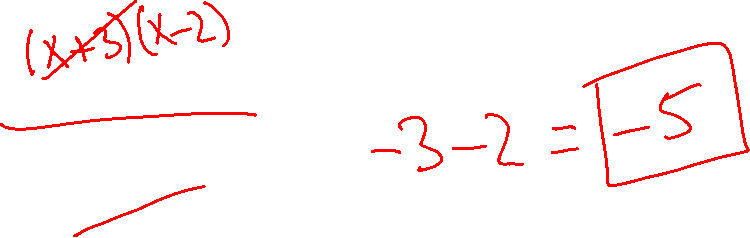 (x+3)(x-2)
-3-2=-5